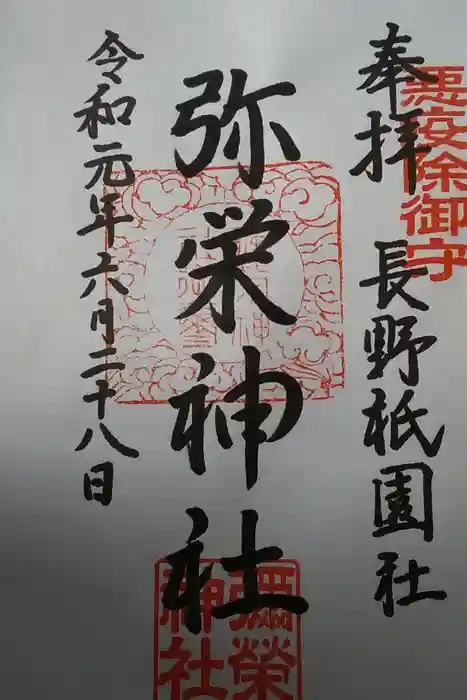 悪疫除御守
奉拝
長野祇園社
弥栄神社
彌榮
神社
令和元年六月二十八日